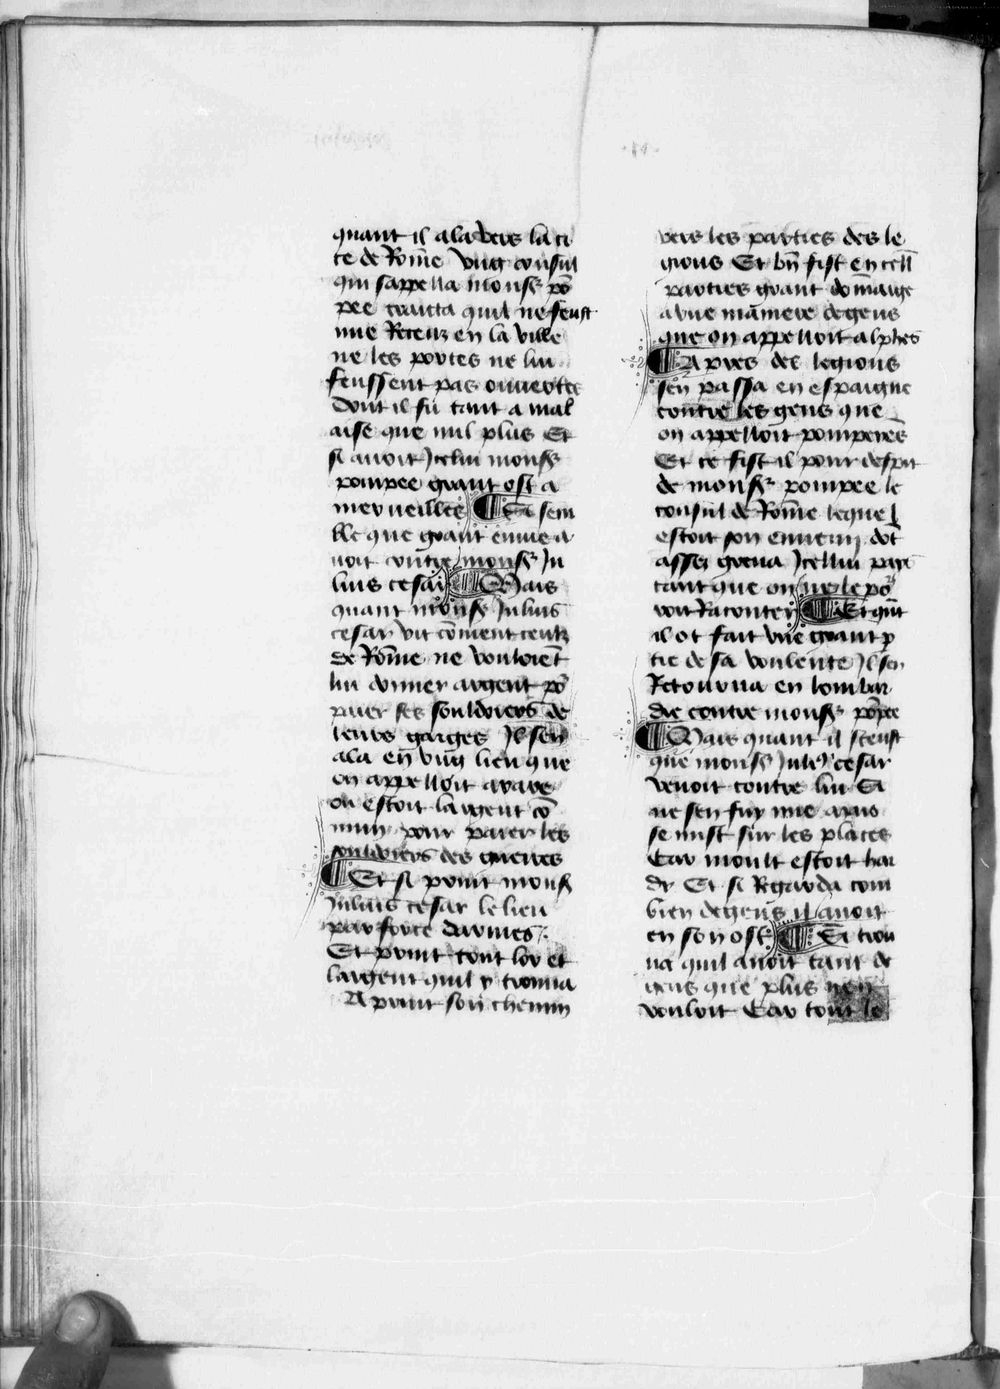 quant il ala vers la ci
te de Rõme vng consul
qui sappella monsr põ
pee traicta quil ne feust
mie Receuz en la ville
ne les portes ne lui
feussent pas ouuertes
Dont il fu tant a mal
aise que nul plus Et
si auoit Jcelui monsr
pompee grant ost a
merueilles ¶ Et sem
ble que grant enuie a
uoit contre monsr Ju
lius cesar ¶ Mais
quant monsr Julius
cesar vit cõment ceulz
de Rõme ne vouloiẽt
lui donner argent põ
paier ses souldoiers de
leurs gaiges Jl sen
ala en vng lieu que
on appelloit arare
ou estoit largent cõ
mun pour paier les
souldoiers des guerres
¶ Et si print monsr
Julius cesar le lieu
par force darmes.
Et print tout lor et
largent quil y trouua
Et print son chemin
vers les parties des le
gions Et bñ fist en cell
parties grant dõmaige
a vne maniere de gens
que on appelloit alphes
¶ Apres des legions
sen passa en espaigne
contre les gens que
on appelloit pomperẽs
Et ce fist il pour despit
de monsr pompee le
consul de Rõme lequel
estoit son ennemi dõt
asses greua Jcellui pais
tant que on ne le po
roit Raconter ¶ Et qñt
il ot fait vne grant p
tie de sa voulente Jl sen
Retourna en lombar
die contre monsr põpee
¶ Mais quant il sceust
que monsr Juli9 cesar
venoit contre lui Si
ne sen fuy mie ains
se mist sur les places
Car moult estoit har
di Et si Regarda com
bien de gens il auoit
en son ost ¶ Si trou
ua quil auoit tant de
gens que plus nen
vouloit Car tout le